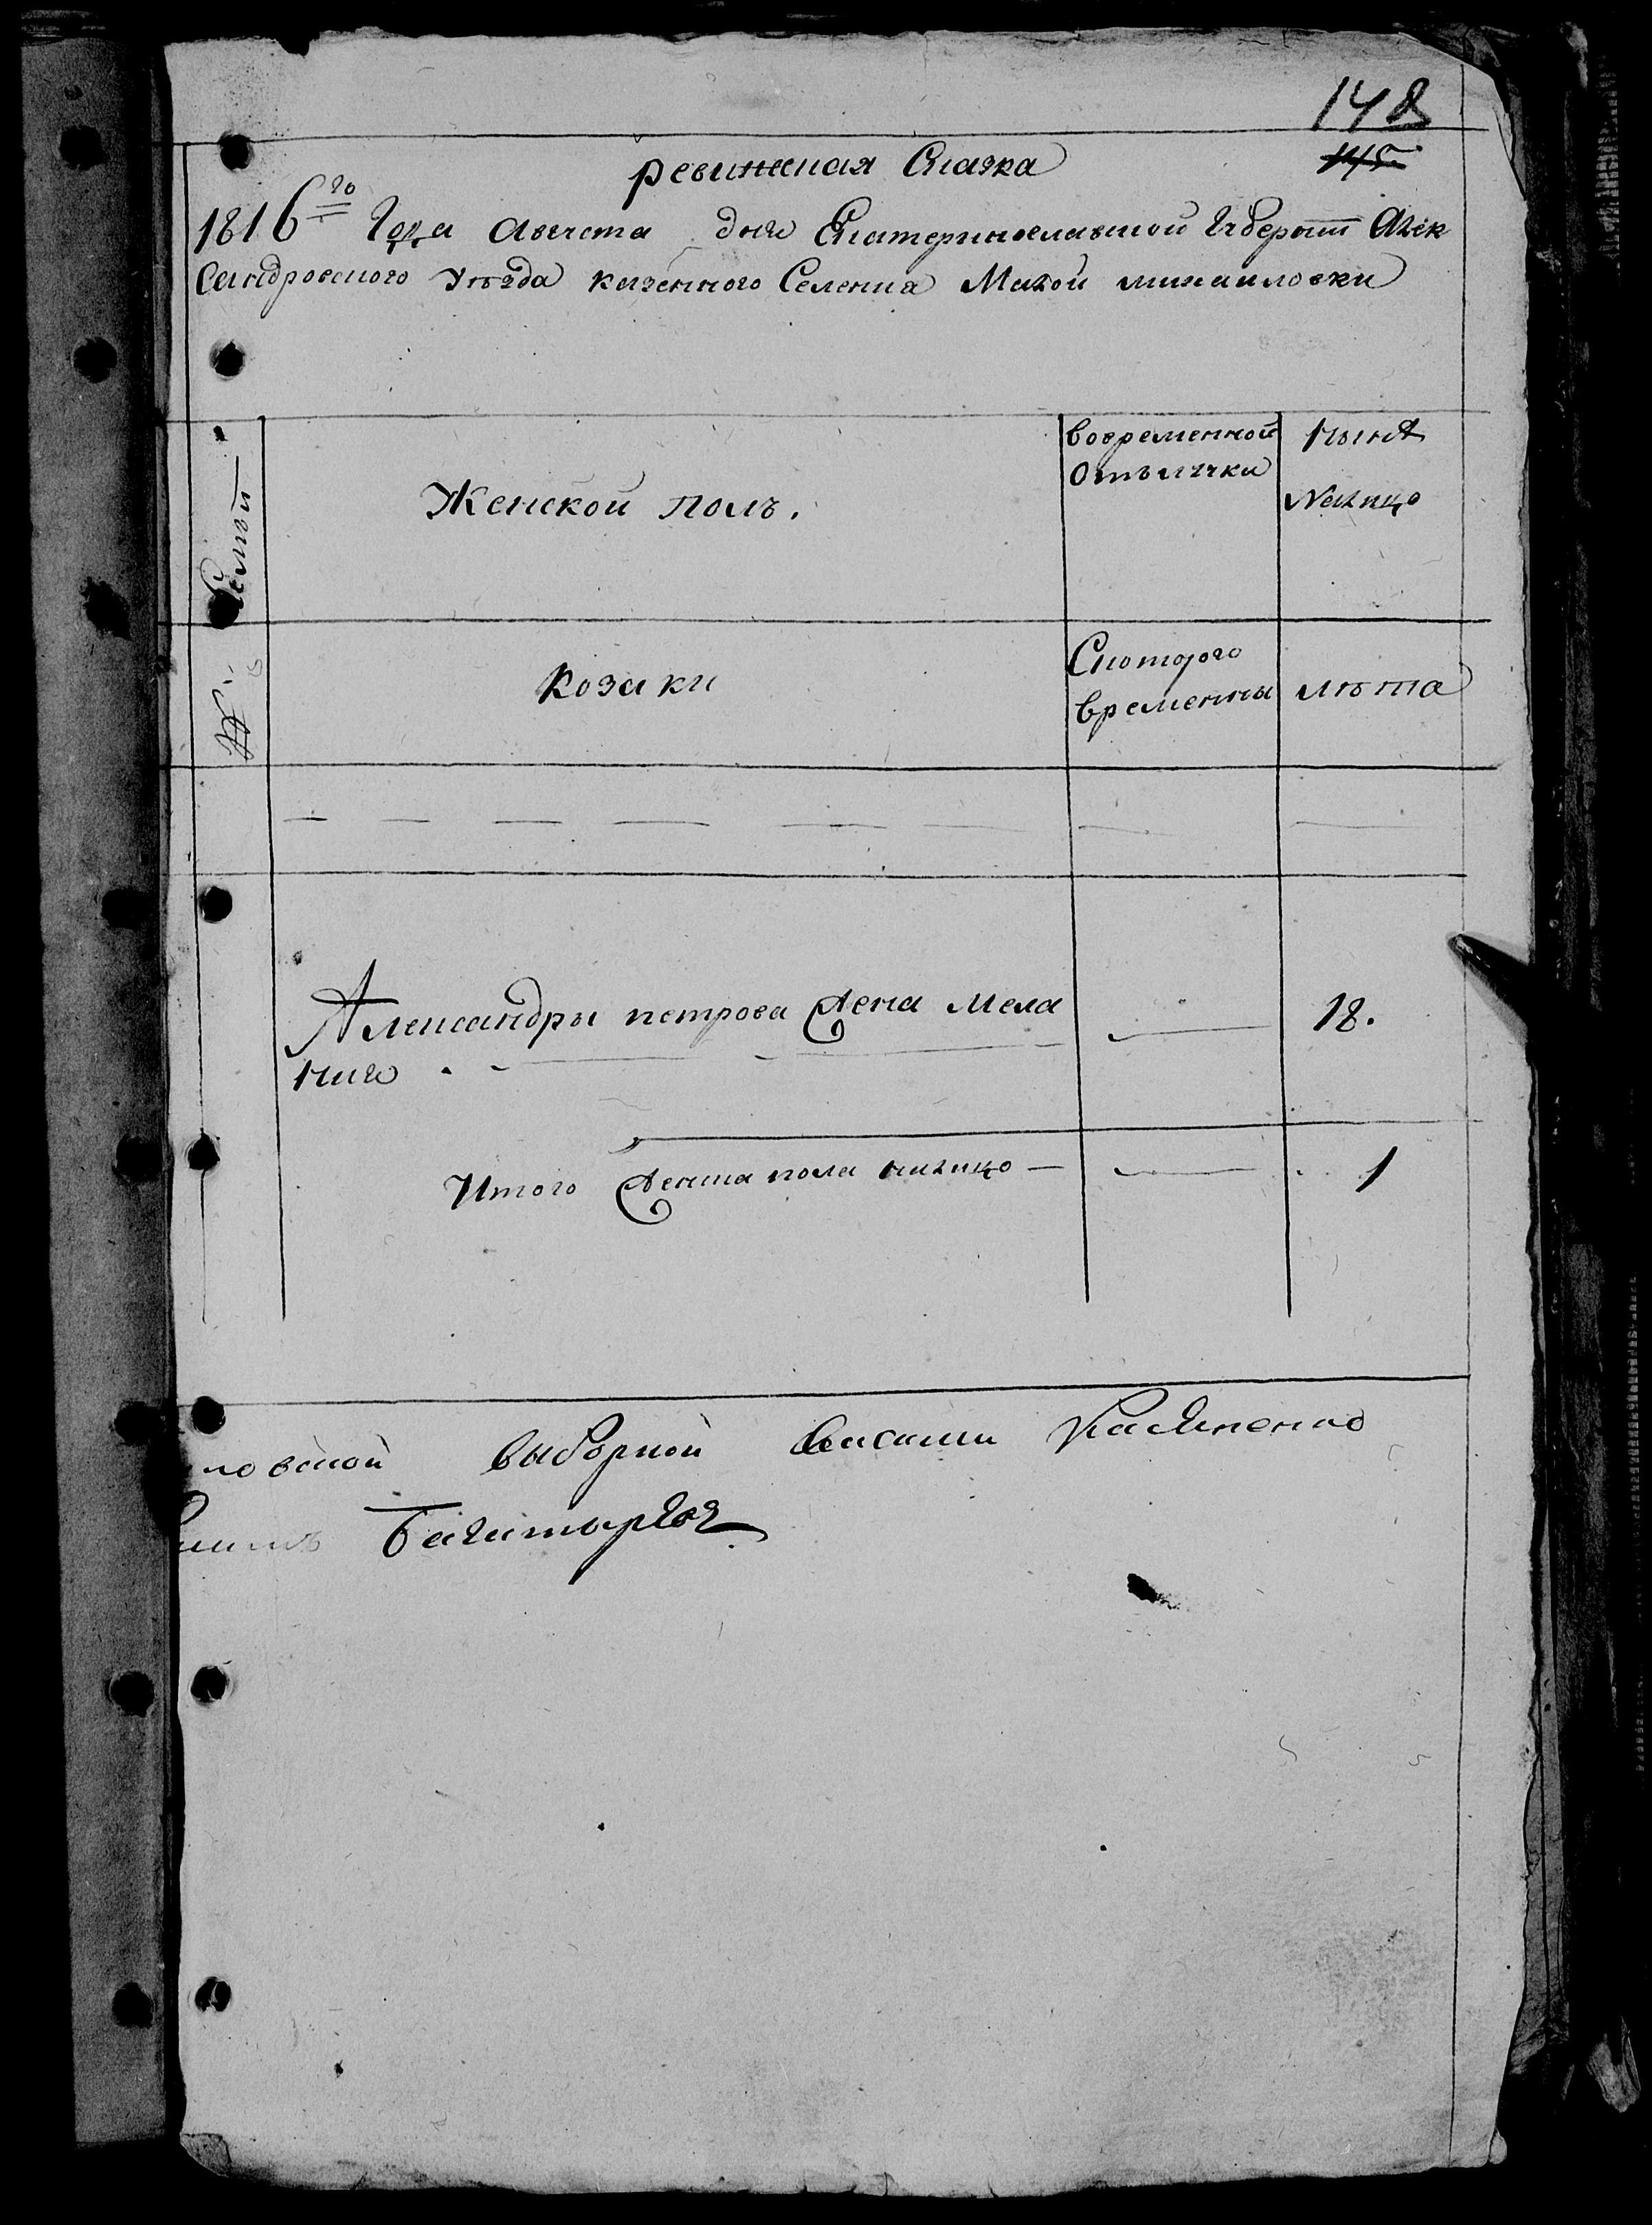 148
145
ревижская Сказка
1816го Года Августа дня Екатеринославской Губернии Алек
сандровского Уезда казенного Селения Малой михайловки
Семьи
Женской полъ.
вовременной
Отълучки
ныне
Налицо
№:
Козаки
Скоторого
времянны
лѣта
Александры петрова жена Мела
ния
18.
Итого женска пола налицо
1
ловской выборной Касяненко